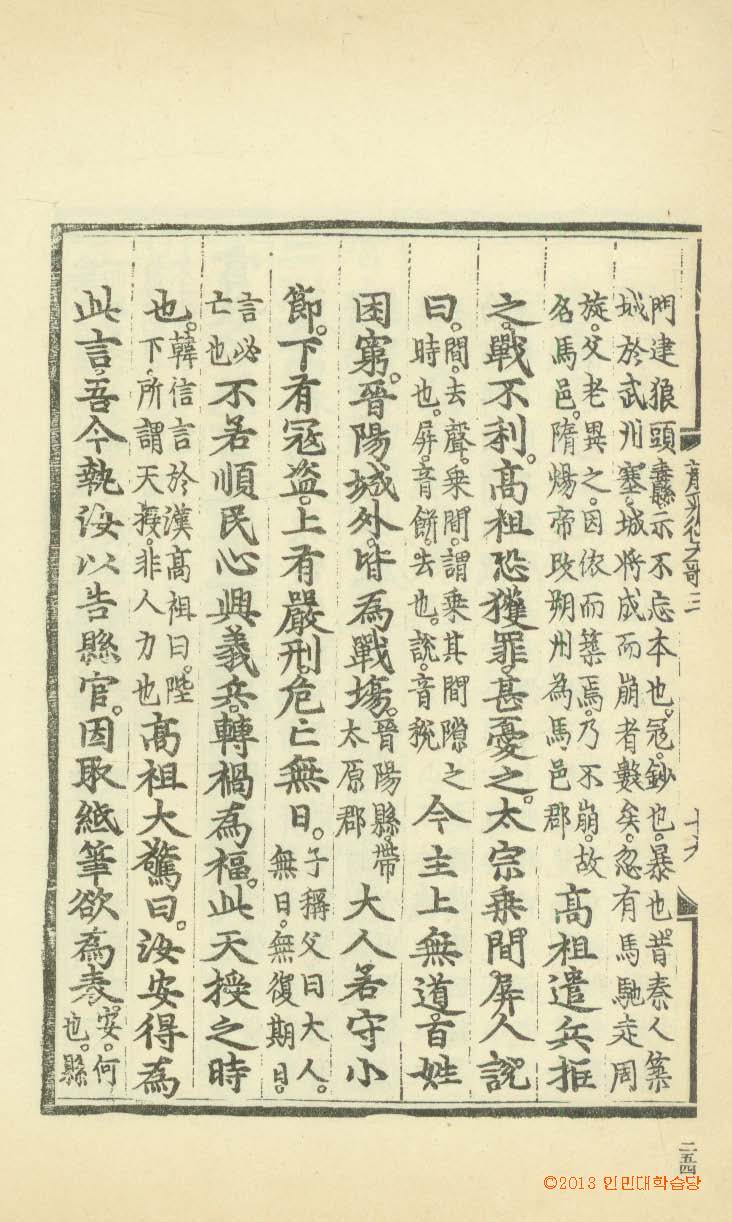 龍飛御天歌三
十六
門建狼頭纛縣示不忘本也。冦。鈔也。暴也。昔秦人築
城於武州塞。城將成而崩者數矣。忽有馬馳走周
旋。父老異之。因依而築焉。乃不崩。故
名馬邑。隋煬帝改朔州為馬邑郡
高祖遣兵拒
之。戰不利。高祖恐獲罪。甚憂之。太宗乘間。屏人說
曰。
間。去聲。乘間。謂乘其間隙之
時也。屏。音餅。去也。說。音稅
今主上無道。百姓
困窮。晉陽城外。皆為戰塲。
晉陽縣。帶
太原郡
大人若守小
節。下有冦盗。上有嚴刑。危亡無日。
子稱父曰大人。
無日。無復期日。
言必
亡也
不若順民心興義兵。轉禍為福。此天授之時
也。
韓信言於漢高祖曰。陛
下所謂天授。非人力也
高祖大驚曰。汝安得為
此言。吾今執汝以告縣官。因取紙筆欲為表。
安。何
也。縣
二五四
©2013 인민대학습당